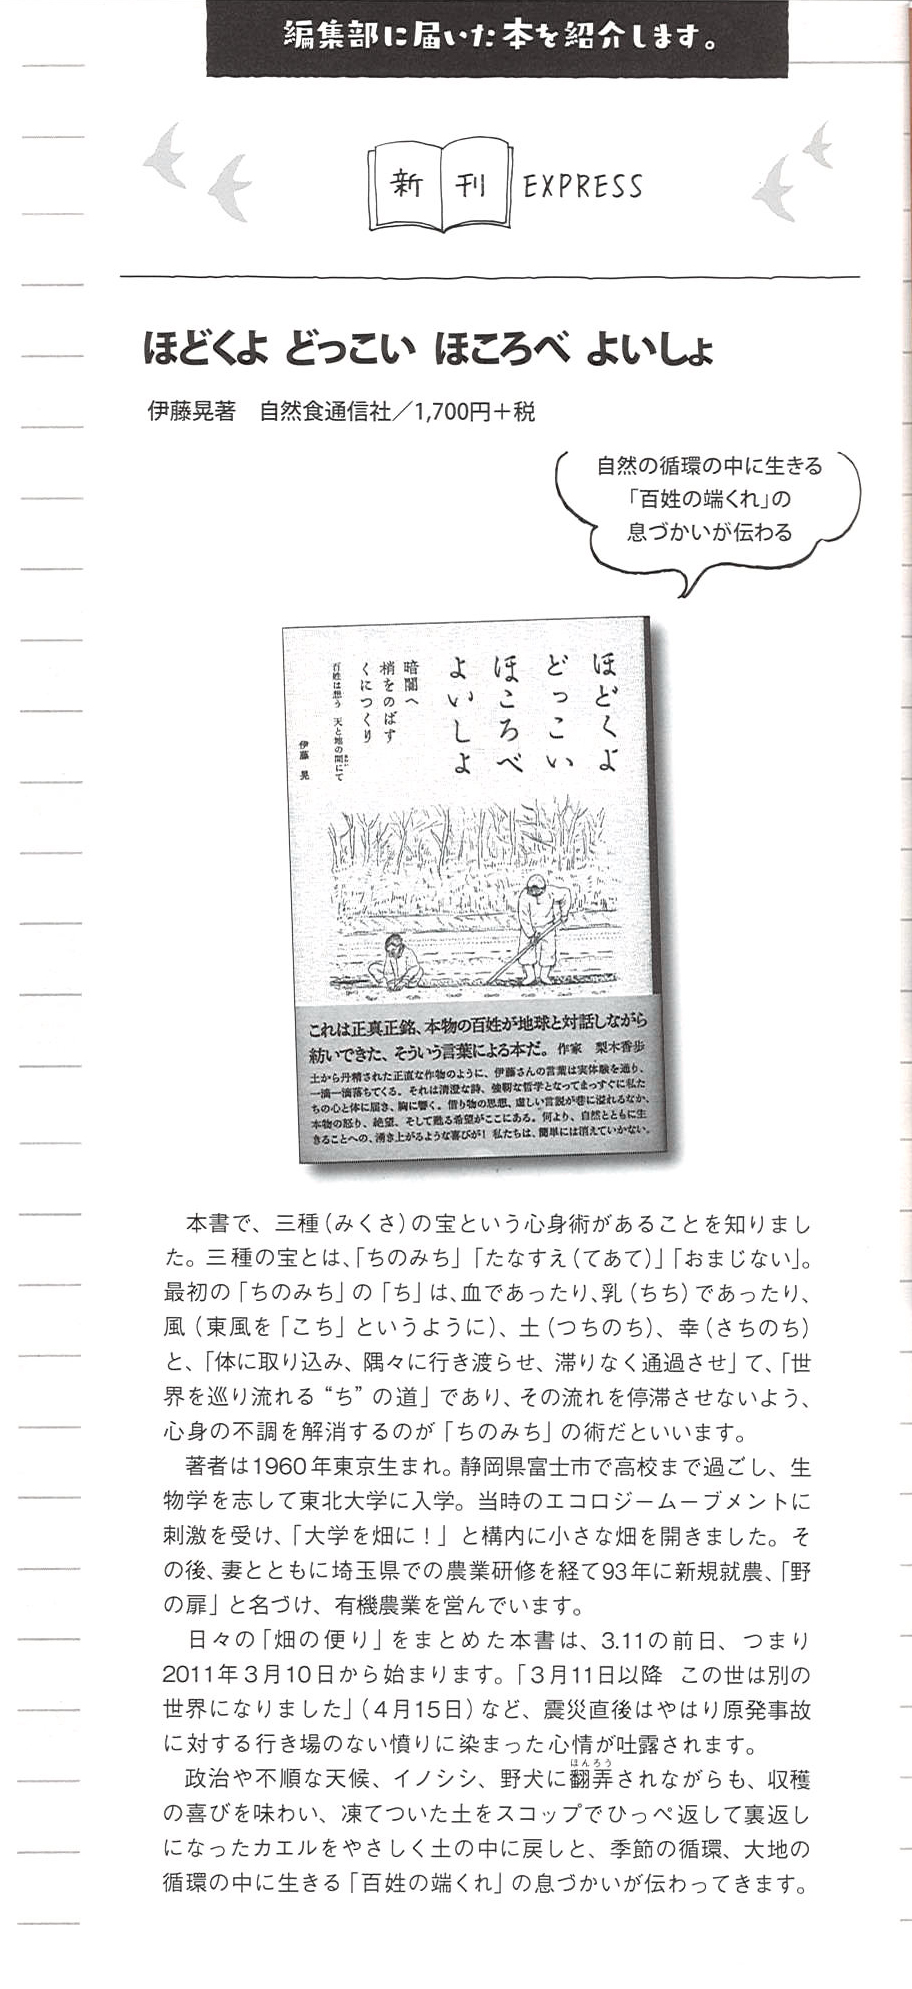 編集部に届いた本を紹介します。
新刊 EXPRESS
ほどくよ どっこい ほころべ よいしょ
伊藤晃著　自然食通信社／1,700円＋税
自然の循環の中に生きる
「百姓の端くれ」の
息づかいが伝わる
ほどくよ
どっこい
ほころべ
よいしょ
暗闇へ
梢をのばす
くにつくり
百姓は想う 天と地の間にて
伊藤 晃
これは正真正銘、本物の百姓が地球と対話しながら
紡いできた、そういう言葉による本だ。 作家 梨木香歩
土から丹精された正直な作物のように、伊藤さんの言葉は実体験を通り、
一滴一滴落ちてくる。それは清澄な詩、強靭な哲学となってまっすぐに私た
ちの心と体に届き、胸に響く。借り物の思想、虚しい言説が巷に溢れるなか、
本物の怒り、絶望、そして甦る希望がここにある。何より、自然とともに生
きることへの、湧き上がるような喜びが！ 私たちは、簡単には消えていかない。
本書で、三種（みくさ）の宝という心身術があることを知りまし
た。三種の宝とは、「ちのみち」「たなすえ（てあて）」「おまじない」。
最初の「ちのみち」の「ち」は、血であったり、乳（ちち）であったり、
風（東風を「こち」というように）、土（つちのち）、幸（さちのち）
と、「体に取り込み、隅々に行き渡らせ、滞りなく通過させ」て、「世
界を巡り流れる“ち”の道」であり、その流れを停滞させないよう、
心身の不調を解消するのが「ちのみち」の術だといいます。
著者は1960年東京生まれ。静岡県富士市で高校まで過ごし、生
物学を志して東北大学に入学。当時のエコロジームーブメントに
刺激を受け、「大学を畑に！」と構内に小さな畑を開きました。そ
の後、妻とともに埼玉県での農業研修を経て93年に新規就農、「野
の扉」と名づけ、有機農業を営んでいます。
日々の「畑の便り」をまとめた本書は、3.11の前日、つまり
2011年3月10日から始まります。「3月11日以降 この世は別の
世界になりました」（4月15日）など、震災直後はやはり原発事故
に対する行き場のない憤りに染まった心情が吐露されます。
ほんろう
政治や不順な天候、イノシシ、野犬に翻弄されながらも、収穫
の喜びを味わい、凍てついた土をスコップでひっぺ返して裏返し
になったカエルをやさしく土の中に戻しと、季節の循環、大地の
循環の中に生きる「百姓の端くれ」の息づかいが伝わってきます。